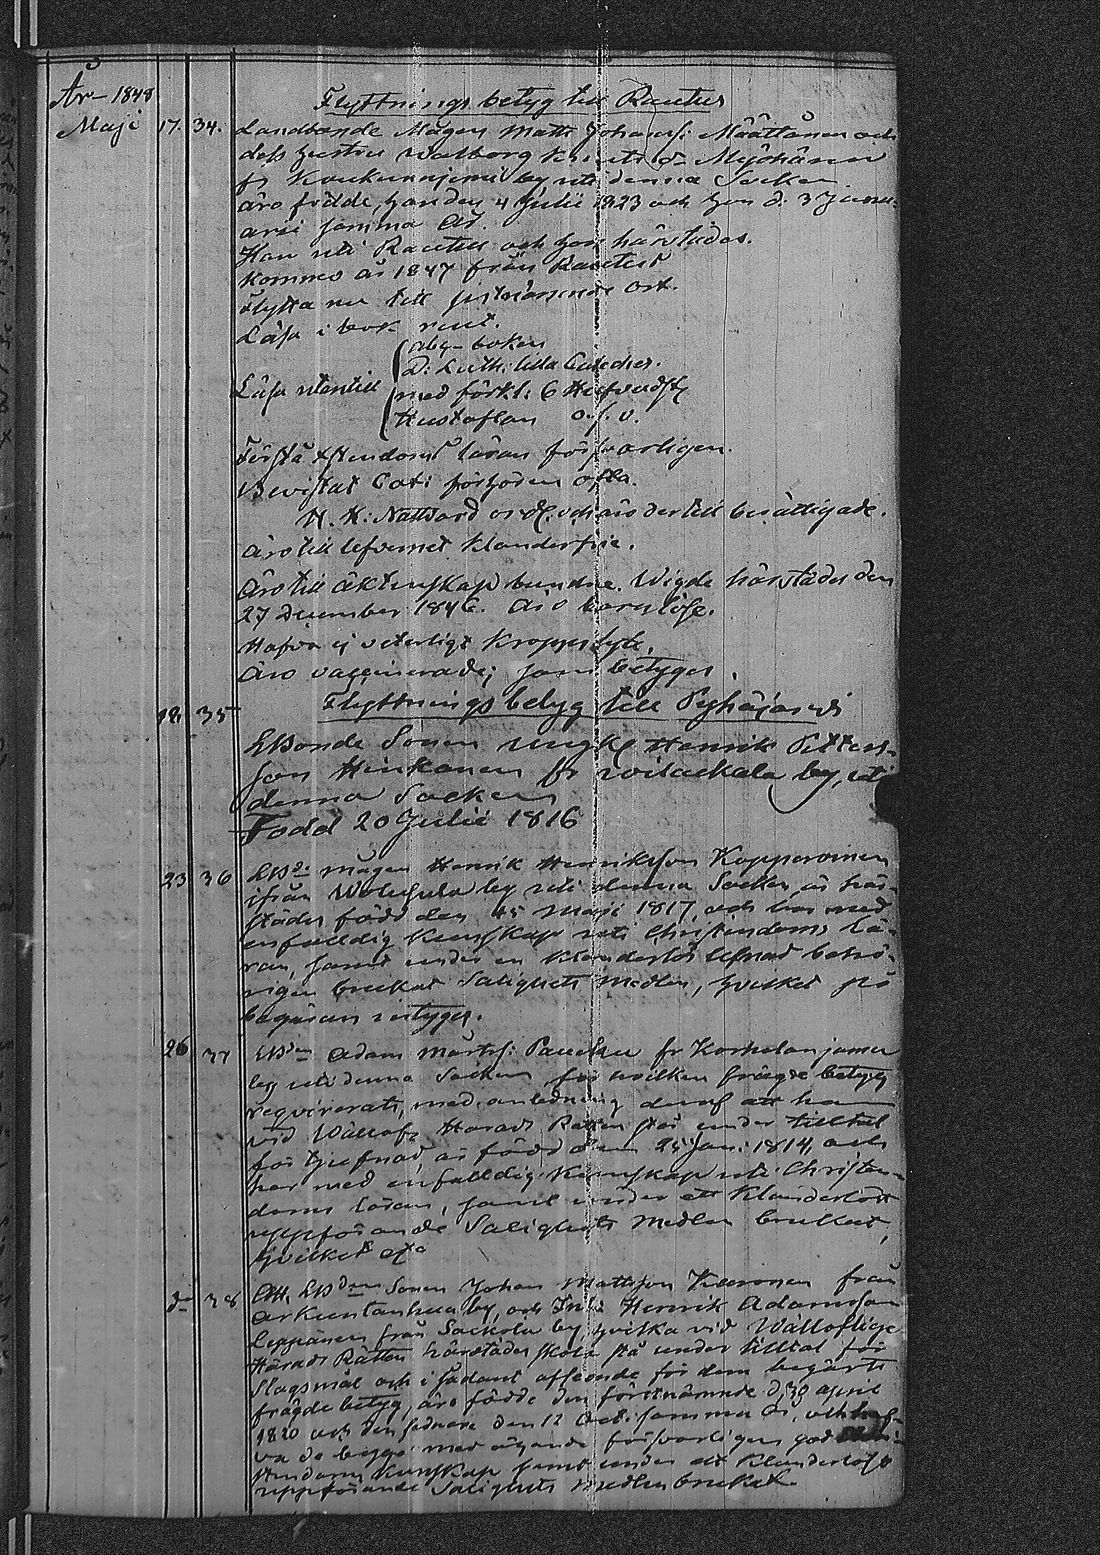 År 1848
Flyttnings betyg till Rautus
Maji 17. 34. Landbonde Mågen Matts Johanss: Määttänen och
dess hustru Walborg Knutsdr
by uti denna Socken
äro födde, han den 4 Julii 1823 och hon d. 3 Janu-
arii samma år.
Han uti Rautus och hon härstädes.
Kommo år 1847 från Rautus
Flytta nu till sistnämnde ort.
Läsa i bok rent.
abc-boken
D: Luth: lilla Cateches.
Läsa utantill med förkl: 6 Hufvudst
Hustaflan o.s.v.
Förstå Xstendoms läran försvarligen.
Bevistat Cat: förhören ofta.
H. H: Nattvard och äro dertill berättigade.
Äro till lefvernet klanderfrie.
Äro till äktenskap bundne. Wigde härstädes den
27 December 1846. Äro barnlöse.
Hafva ej veterligt kroppslyte.
Äro vaccinerade; som betyger.
Flyttnings betyg till Pyhäjärvi
18. 35 LBonde Sonen ungk Henrik Petters-
son Hinkanen fr by, uti
denna Socken
Född 20 Julii 1816
23 36 mågen Henrik Henriksson Kopperoinen
ifrån by uti denna Socken, är här-
städes född den 15 Maji 1817, och har med
enfalldig kunskap uti Christendoms lä-
ran, samt under en klanderlös lefnad behö-
rigen brukat Salighets medlen, hvilket på
begäran intygas.
26 37 Adam Mårtss: fr
by uti denna Socken, för hvilken frägde betyg
requirerats, med anledning deraf att han
vid Wällofl. Härads Rätten står under tilltal
för tjufnad, är född den 25 Jan: 1814, och
har med enfalldig kunskap uti Christen-
doms läran, samt under ett klanderlöst
uppförande Salighets medlen brukat,
hvilket
38 Att Sonen Johan Mattsson från
by, och Henrik Adamsson
Leppänen från Sackola by, hvilka vid Wälloflige
Härads Rätten härstädes skola stå under tilltal för
Slagsmål och i sådant afseende för dem begärts
frägde betyg, äro födde den förstnämnde d. 30 april
1820 och den sednare den 12 Oct: samma år, och haf-
va de begge med ägande försvarligen god
stendoms kunskap samt under ett klanderlöst
uppförande Salighets medlen brukat